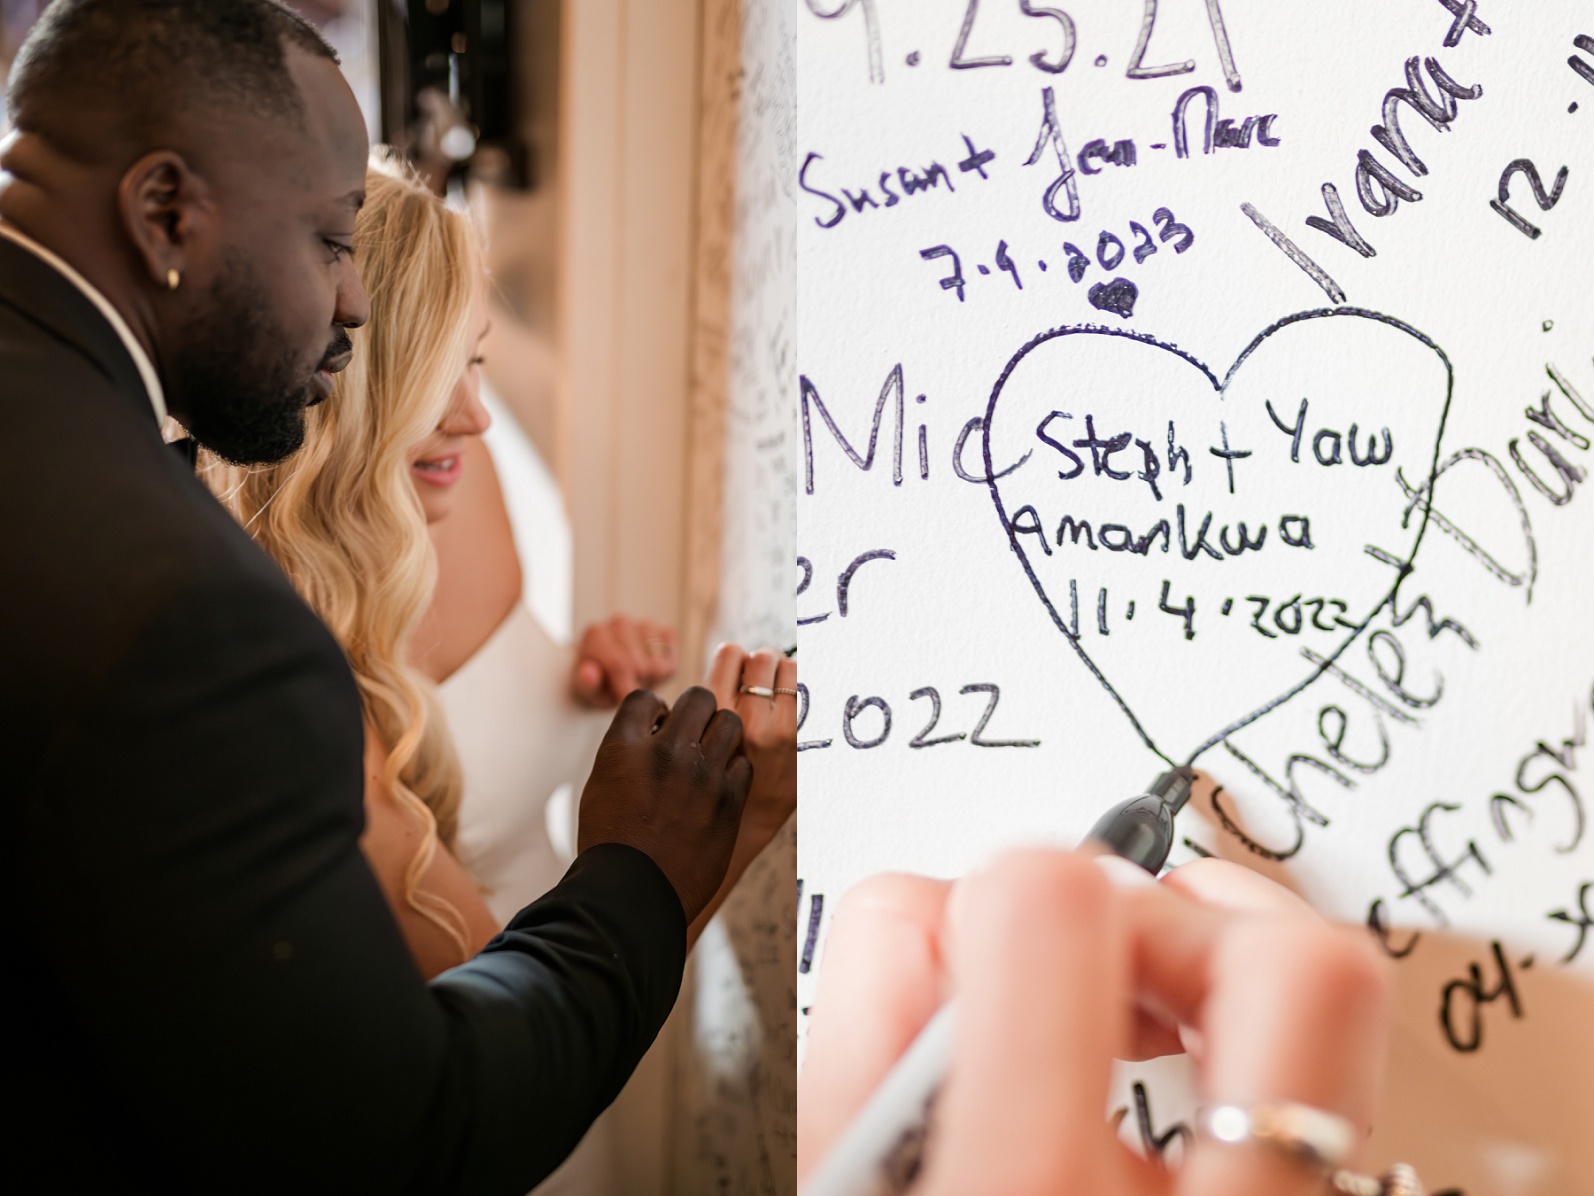 9.25.21
Susan + Jean-Marc
7.9.2023
Ivana +
12.
Mic
Steph + Yaw
Amankwa
11.4.2022
er
2022
04.